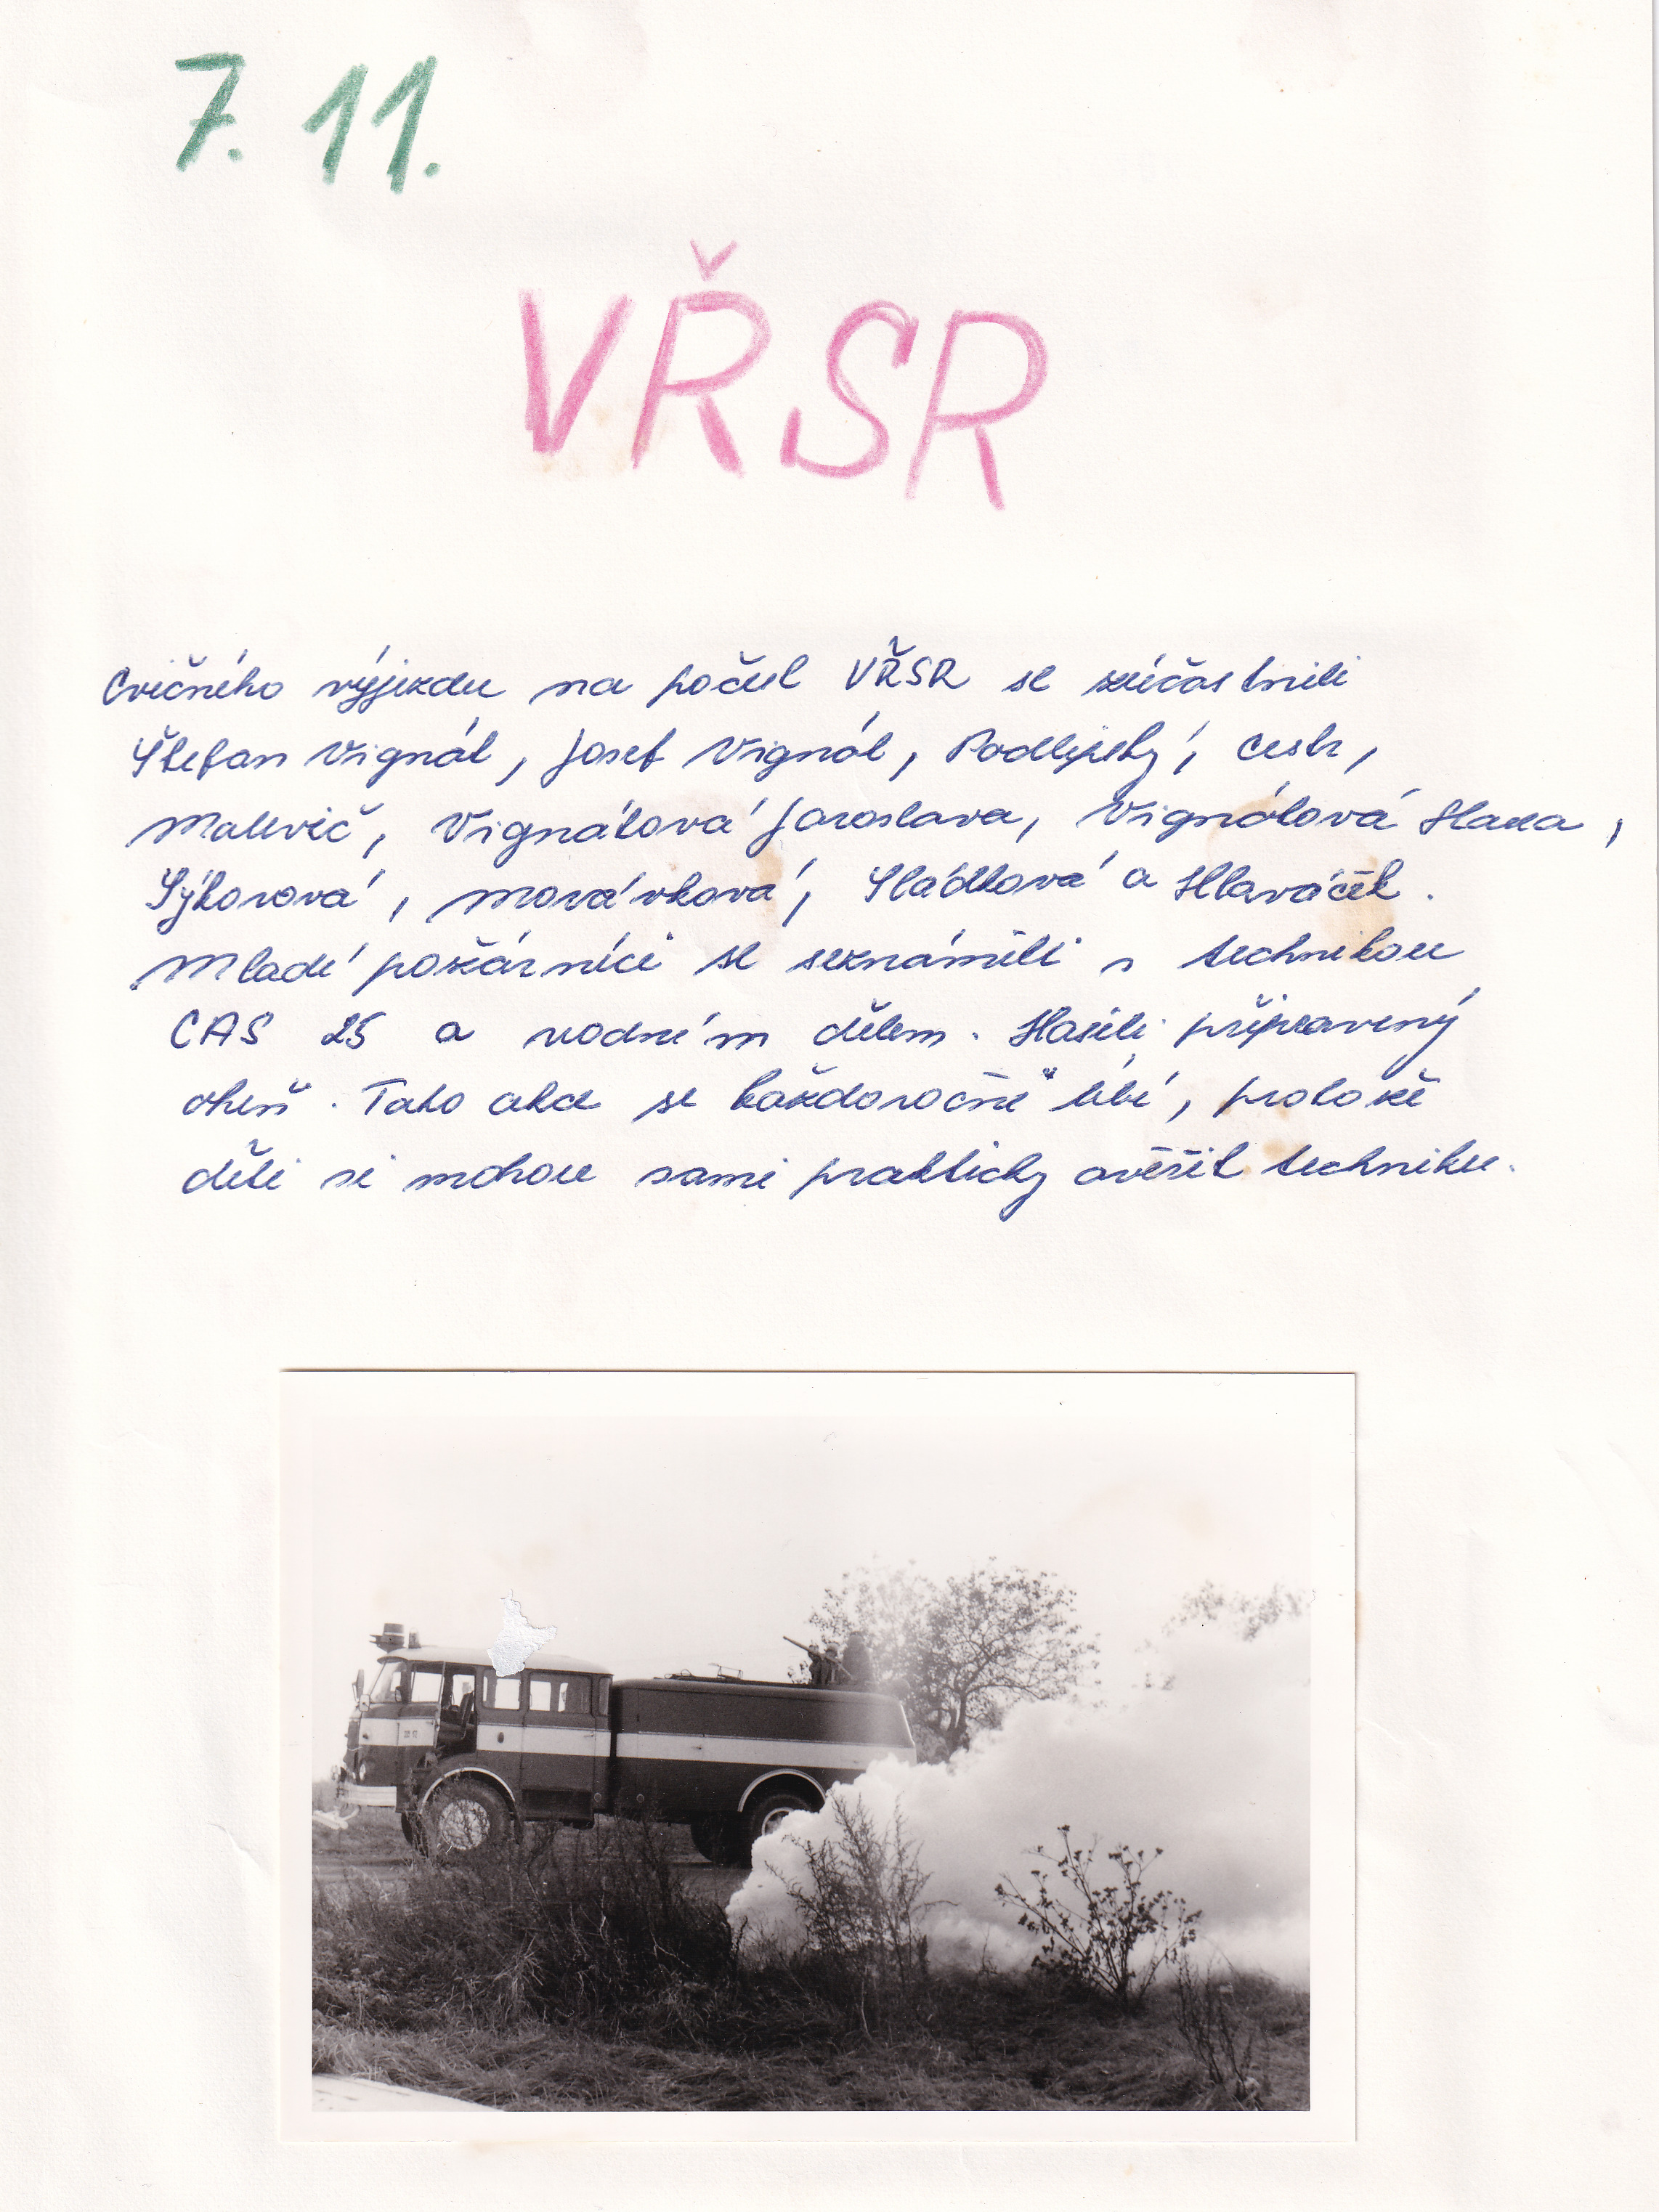 7. 11.
VŘSR
Cvičného výjezdu na počest VŘSR se zúčastnili
Štefan Vignát, Josef Vignát, Podlipský, Cestr,
Matěvič, Vignátová Jaroslava, Vignátová Hana,
Sýkorová, Morávková, Sládková a Hlaváček.
Mladí požárníci se seznámili s technikou
CAS 25 a vodním dělem. Hasili připravený
oheň. Tato akce se každoročně líbí, protože
děti si mohou sami prakticky ověřit techniku.